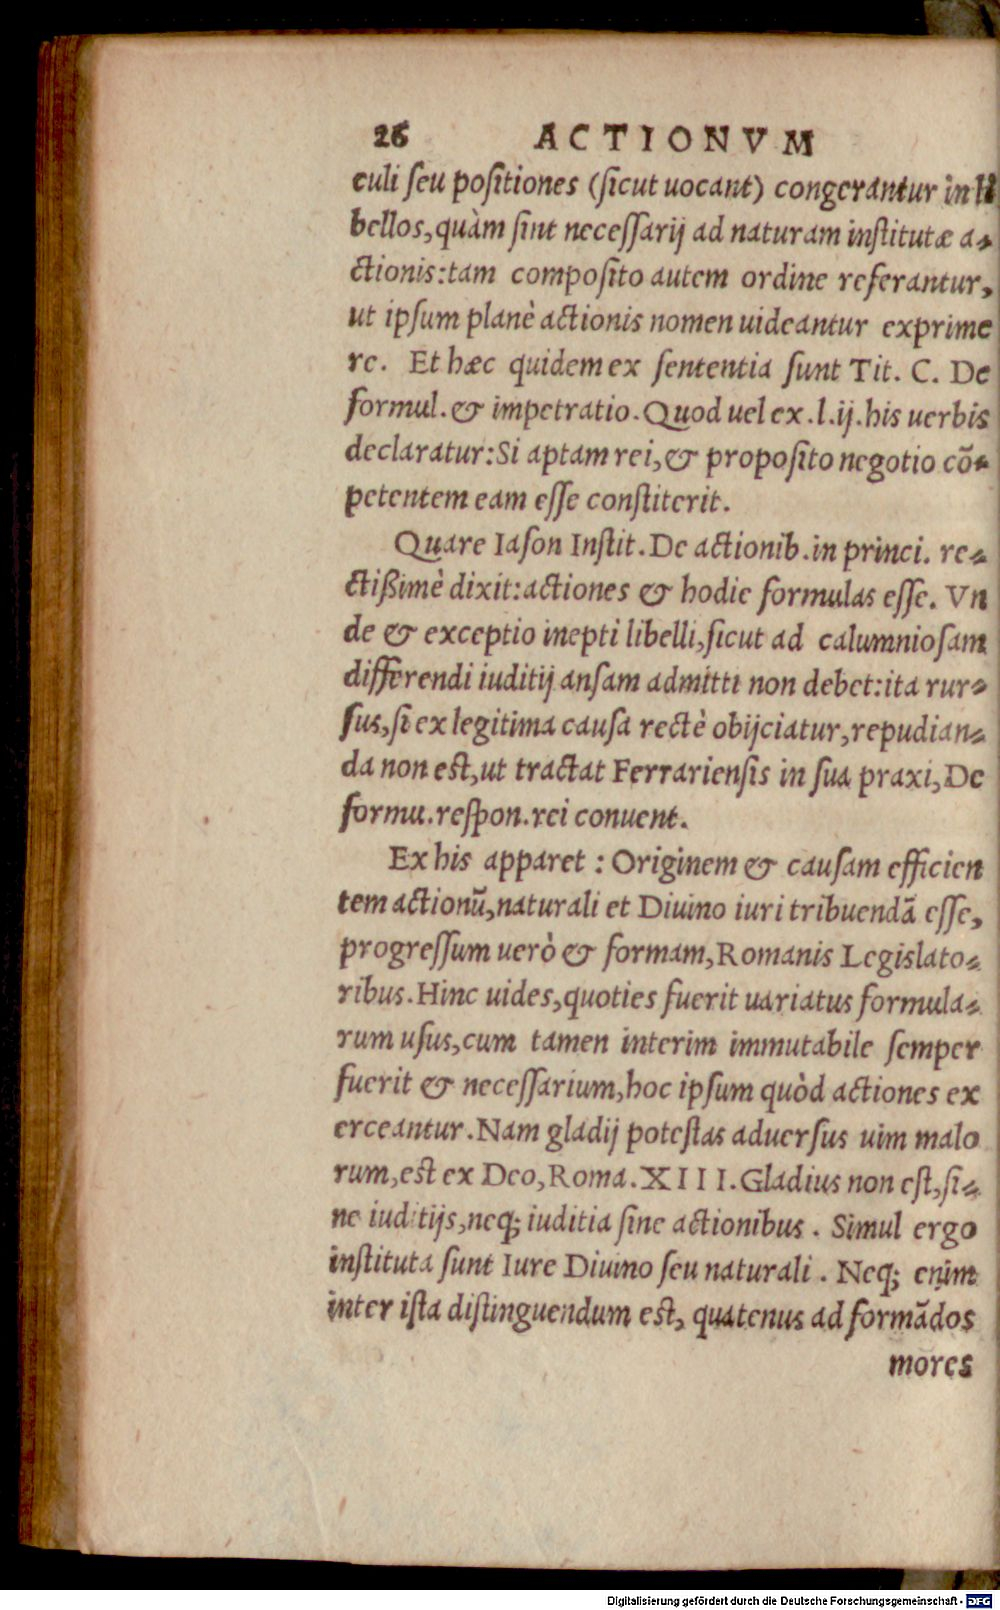 26 ACTIONVM
culi seu positiones (sicut uocant) congerantur in li
bellos, quàm sint necessarij ad naturam institutæ a-
ctionis: tam composito autem ordine referantur,
ut ipsum planè actionis nomen uideantur exprime
re. Et hæc quidem ex sententia sunt Tit. C. De
formul. & impetratio. Quod uel ex .l.ij. his uerbis
declaratur: Si aptam rei, & proposito negotio cõ-
petentem eam esse constiterit.
Quare Iason Instit. De actionib. in princi. re-
ctißimè dixit: actiones & hodie formulas esse. Vn
de & exceptio inepti libelli, sicut ad calumniosam
differendi iuditij ansam admitti non debet: ita rur-
sus, si ex legitima causa rectè obijciatur, repudian-
da non est, ut tractat Ferrariensis in sua praxi, De
formu. respon. rei conuent.
Ex his apparet : Originem & causam efficien
tem actionũ, naturali et Diuino iuri tribuendã esse,
progressum uerò & formam, Romanis Legislato-
ribus. Hinc uides, quoties fuerit uariatus formula-
rum usus, cum tamen interim immutabile semper
fuerit & necessarium, hoc ipsum quòd actiones ex
erceantur. Nam gladij potestas aduersus uim malo
rum, est ex Deo, Roma. XIII. Gladius non est, si-
ne iuditijs, neq; iuditia sine actionibus. Simul ergo
instituta sunt Iure Diuino seu naturali. Neq; enim
inter ista distinguendum est, quatenus ad formãdos
mores
Digitalisierung gefördert durch die Deutsche Forschungsgemeinschaft - DFG